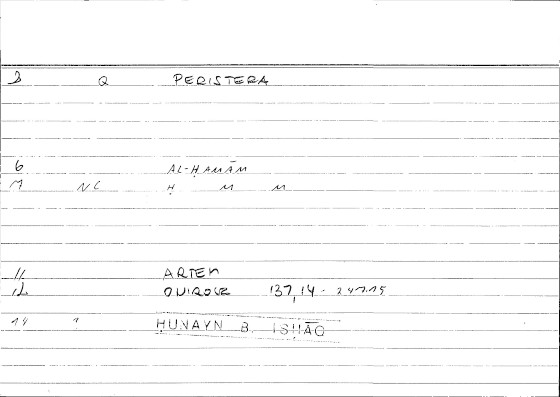 3 Q PERISTERA
6 AL-ḤAMĀM
M NC Ḥ M M
11 ARTEM
12 ONIROCR 137,14 - 247.15
14 1 ḤUNAYN B. ISḤĀQ